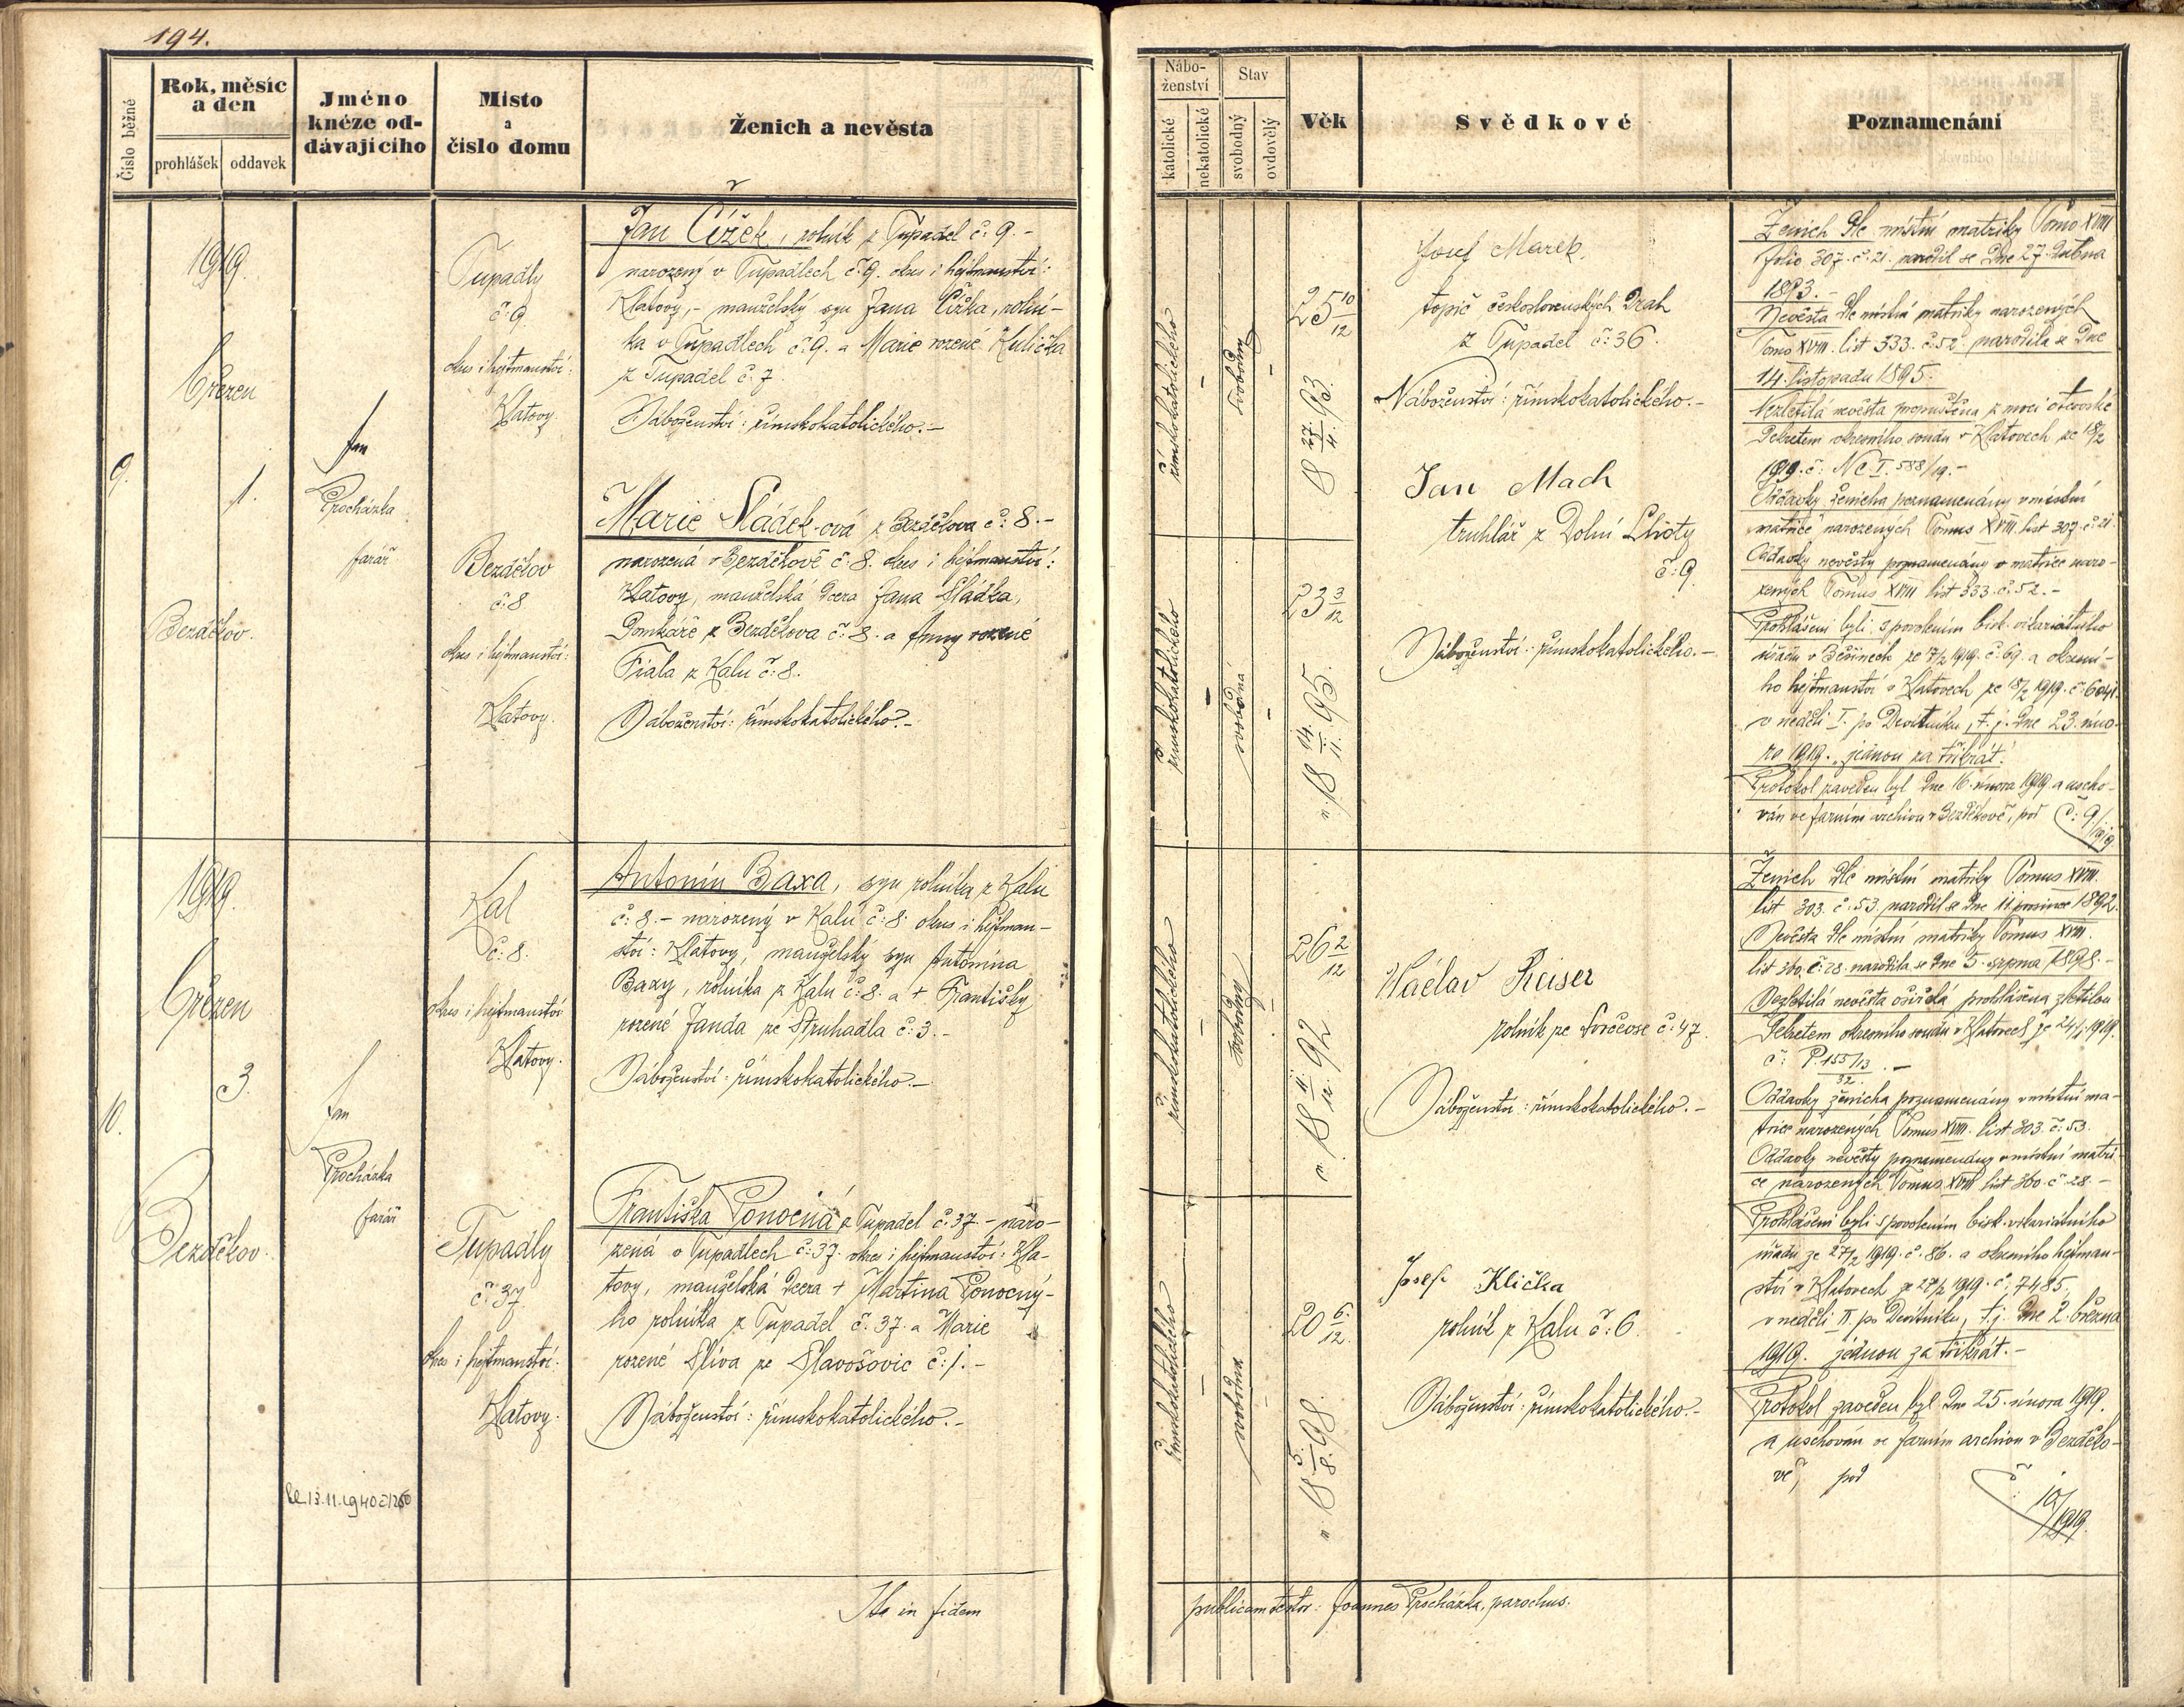 194.
Číslo běžné
Rok, měsíc a den
prohlášek
oddavek
Jméno
kněze od-
dávajícího
Místo
a
číslo domu
Ženich a nevěsta
Nábo-
ženství
katolické
nekatolické
Stav
svobodný
ovdovělý
Věk
Svědkové
Poznamenání
9.
1919.
Březen
1.
Bezděkov.
Jan
Procházka
farář
Tupadly
č: 9.
okres i hejtmanství:
Klatovy.
Bezděkov
č: 8
okres i hejtmanství:
Klatovy.
Jan Čížek, rolník z Tupadel č: 9.-
narozený v Tupadlech č: 9. okres i hejtmanství:
Klatovy,- manželský syn Jana Čížka, rolní-
ka v Tupadlech č: 9. a Marie rozené Kulička
z Tupadel č. 7.
Náboženství: římskokatolického.-
Marie Sládek-ová z Bezděkova č: 8.-
narozená v Bezděkově č: 8. okres i hejtmanství:
Klatovy, manželská dcera Jana Sládka,
domkáře z Bezděkova č: 8. a Anny rozené
Fiala z Kalu č: 8.
Náboženství: římskokatolického.-
římskokatolického
-
svobodný
-
25 10/12
18 27./4. 93.
římskokatolického
-
svobodná
-
23 3/12
n. 18 14./11. 95
Josef Marek,
topič československých drah
z Tupadel č: 36.
Náboženství: římskokatolického.-
Jan Mach
truhlář z Dolní Lhoty
č: 9.
Náboženství: římskokatolického.-
Ženich dle místní matriky Tomo XVIII
folio 307. č. 21. narodil se dne 27. dubna
1893.-
Nevěsta dle místní matriky narozených
Tomo XVIII. list 333. č: 52. narodila se dne
14. listopadu 1895.-
Nezletilá nevěsta propuštěna z moci otcovské
dekretem okresního soudu v Klatovech ze 18/2
1919. č: Nc I. 588/19.-
Oddavky ženicha poznamenány v místní
matrice narozených Tomus XVIII. list 307. č: 21.
Oddavky nevěsty poznamenány v matrice naro-
zených Tomus XVIII list 333. č: 52.-
Prohlášeni byli s povolením bisk. vikariátního
úřadu v Běšinech ze 7/2 1919. č: 69. a okresní-
ho hejtmanství v Klatovech ze 18/2 1919. č: 6041
v neděli I. po Devítníku, t. j. dne 23. úno-
ra 1919. jednou za třikrát.
Protokol zaveden byl dne 16. února 1919. a uscho-
ván ve farním archivu v Bezděkově, pod č: 9/1919
10.
1919.
Březen
3.
Bezděkov.
Jan
Procházka
farář
13.11.1940
Kal
č: 8.
okres i hejtmanství
Klatovy.
Tupadly
č: 37
okres i hejtmanství:
Klatovy.
Antonín Baxa, syn rolníka z Kalu
č: 8.- narozený v Kalu č: 8. okres i hejtman-
ství: Klatovy, manželský syn Antonína
Baxy, rolníka z Kalu č: 8. a + Františky
rozené Janda ze Struhadla č: 3.-
Náboženství: římskokatolického.-
Františka Ponocná z Tupadel č: 37.- naro-
zená v Tupadlech č: 37. okres i hejtmanství: Kla-
tovy, manželská dcera + Martina Ponocný-
ho rolníka z Tupadel č. 37. a Marie
rozené Slíva ze Slavošovic č: 1.-
Náboženství: římskokatolického.-
římskokatolického
-
svobodný
-
26 2/12
n. 18 11./12. 92
římskokatolického
-
svobodná
-
20 6./12.
n. 18 5./8. 98.
Václav Reiser
rolník ze Svrčovse č: 47.
Náboženství: římskokatolického.-
Josef Klička
rolník z Kalu č: 6.
Náboženství: římskokatolického.-
Ženich dle místní matriky Tomus XVIII.
list 303. č: 53. narodil se dne 11. prosince 1892.
Nevěsta dle místní matriky Tomus XVIII.
list 360. č: 28. narodila se dne 5. srpna 1898.-
Nezletilá nevěsta osiřelá prohlášena zletilou
dekretem okresního soudu v Klatovech ze 24/1. 1919.
č: P. 155/13 / 32.-
Oddavky ženicha poznamenány v místní ma-
trice narozených Tomus XVIII. list 303. č: 53.
Oddavky nevěsty poznamenány v místní matri-
ce narozených Tomus XVIII list 360. č: 28.-
Prohlášeni byli s povolením bisk. vikariátního
úřadu ze 27/2 1919. č. 86. a okresního hejtman-
ství v Klatovech ze 27/2 1919. č: 7485.
v neděli II. po Devítníku, t. j. dne 2. března
1919. jednou za třikrát.-
Protokol zaveden byl dne 25. února 1919.
a uschován ve farním archivu v Bezděko-
vě, pod č: 10/1919.
Ita in fidem
publicam testor: Joannes Procházka, parochus.